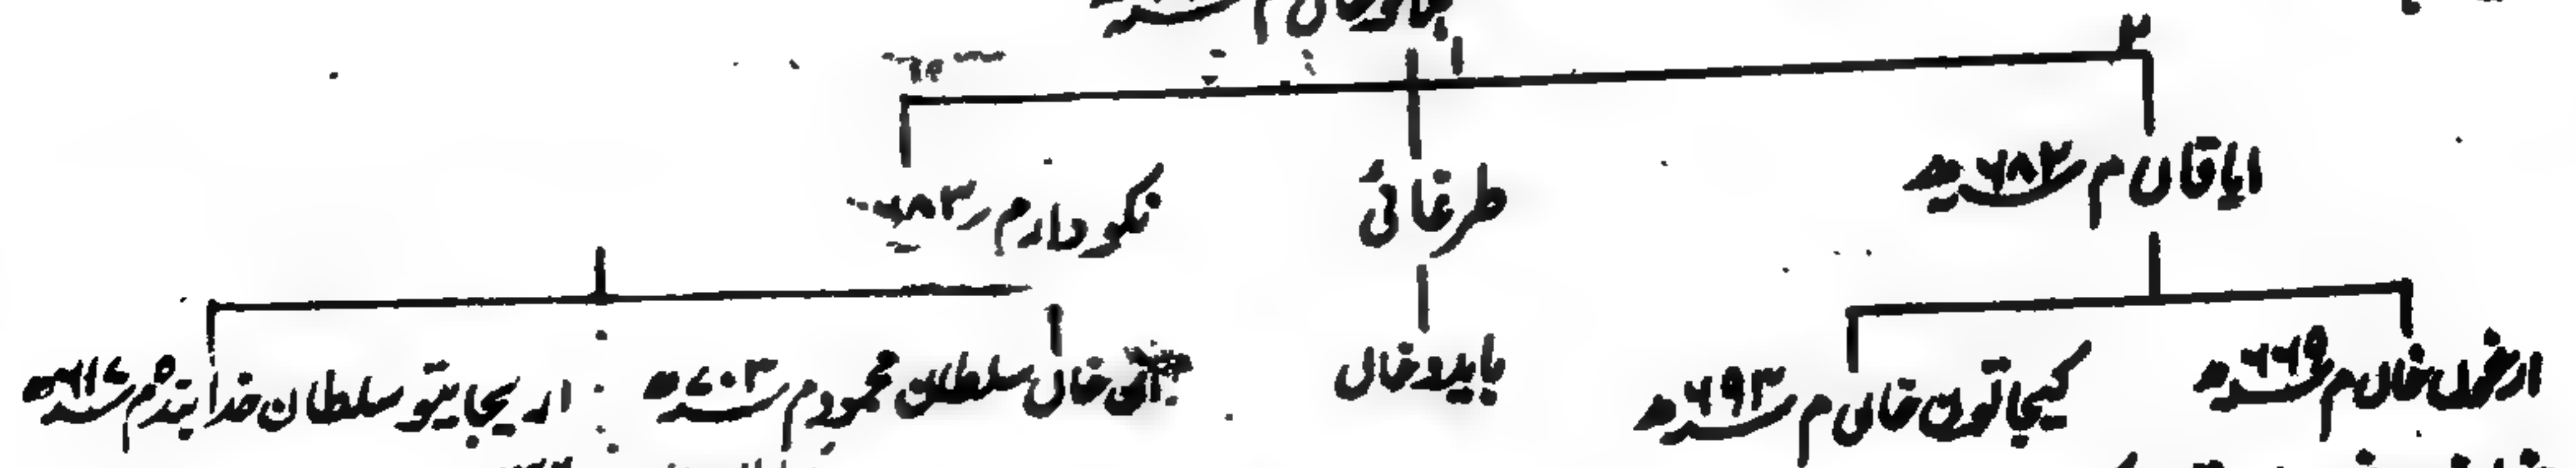 ۲
اباقان م ۶۸۲ھ
طرغائی
نکودارم ۶۸۳
ارغون خان م ۶۶۹ھ
کیجاتون خان م ۶۹۳ھ
بایدوخان
خان سلطان محمود م ۷۰۳ھ
اریجایتو سلطان خدابندہ م ۷۱۶ھ